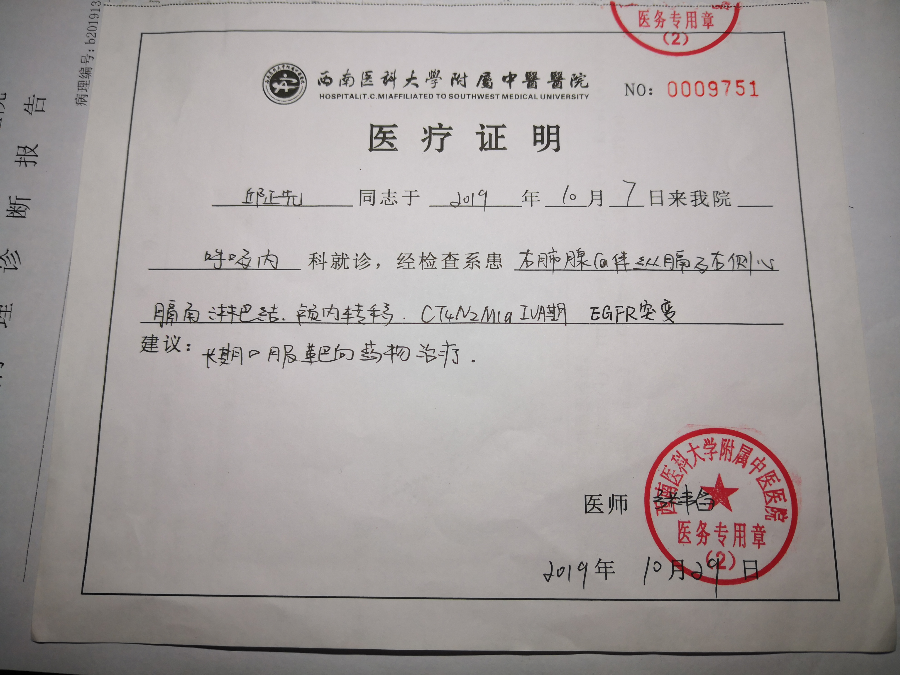 医务专用章
(2)
病理编号:b201913
诊断报告
西南医科大学附属中醫醫院
HOSPITAL(T.C.M)AFFILIATED TO SOUTHWEST MEDICAL UNIVERSITY
NO: 0009751
医疗证明
邱正先 同志于 2019 年 10 月 7 日来我院
呼吸内 科就诊，经检查系患 右肺腺Ca伴纵膈及右侧心
膈角淋巴结、颅内转移. CT4N2M1a IVA期 EGFR突变
建议：长期口服靶向药物治疗.
医师
西南医科大学附属中医医院
医务专用章
(2)
2019年 10月29日